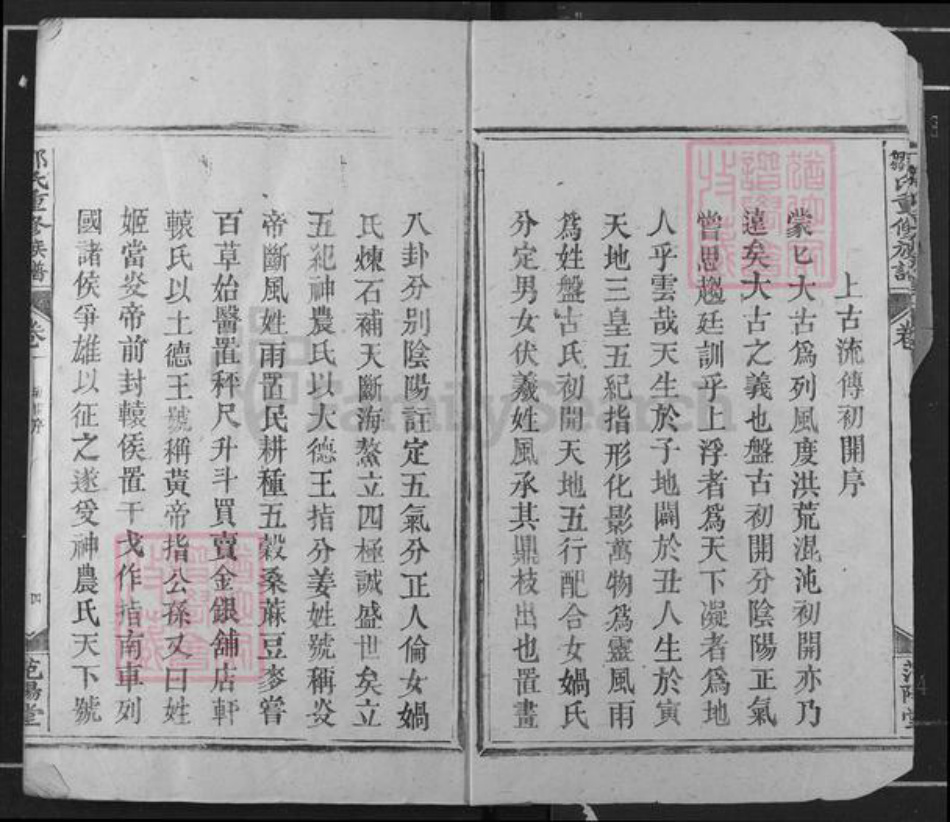 上古流傳初開序
蒙匕大古爲列風度洪荒混沌初開亦乃
遠矣大古之義也盤古初開分陰陽正氣
嘗思趨廷訓乎上浮者爲天下凝者爲地
人乎雲哉天生於子地闢於丑人生於寅
天地三皇五紀指形化影萬物爲靈風雨
爲姓盤古氏初開天地五行配合女媧氏
分定男女伏羲姓風承其鼎枝出也置畫
八卦分別陰陽註定五氣分正人倫女媧
氏煉石補天斷海鰲立四極誠盛世矣立
五祀神農氏以火德王指分姜姓號稱炎
帝斷風姓雨置民耕種五穀桑蔴豆麥嘗
百草始醫置秤尺升斗買賣金銀舖店軒
轅氏以土德王號稱黃帝指公孫又曰姓
姬當炎帝前封轅侯置干戈作指南車列
國諸侯爭雄以征之遂爰神農氏天下號
鄒氏重修族譜
卷
范陽堂
氏重修族譜
卷一
四
范陽堂
FamilySearch